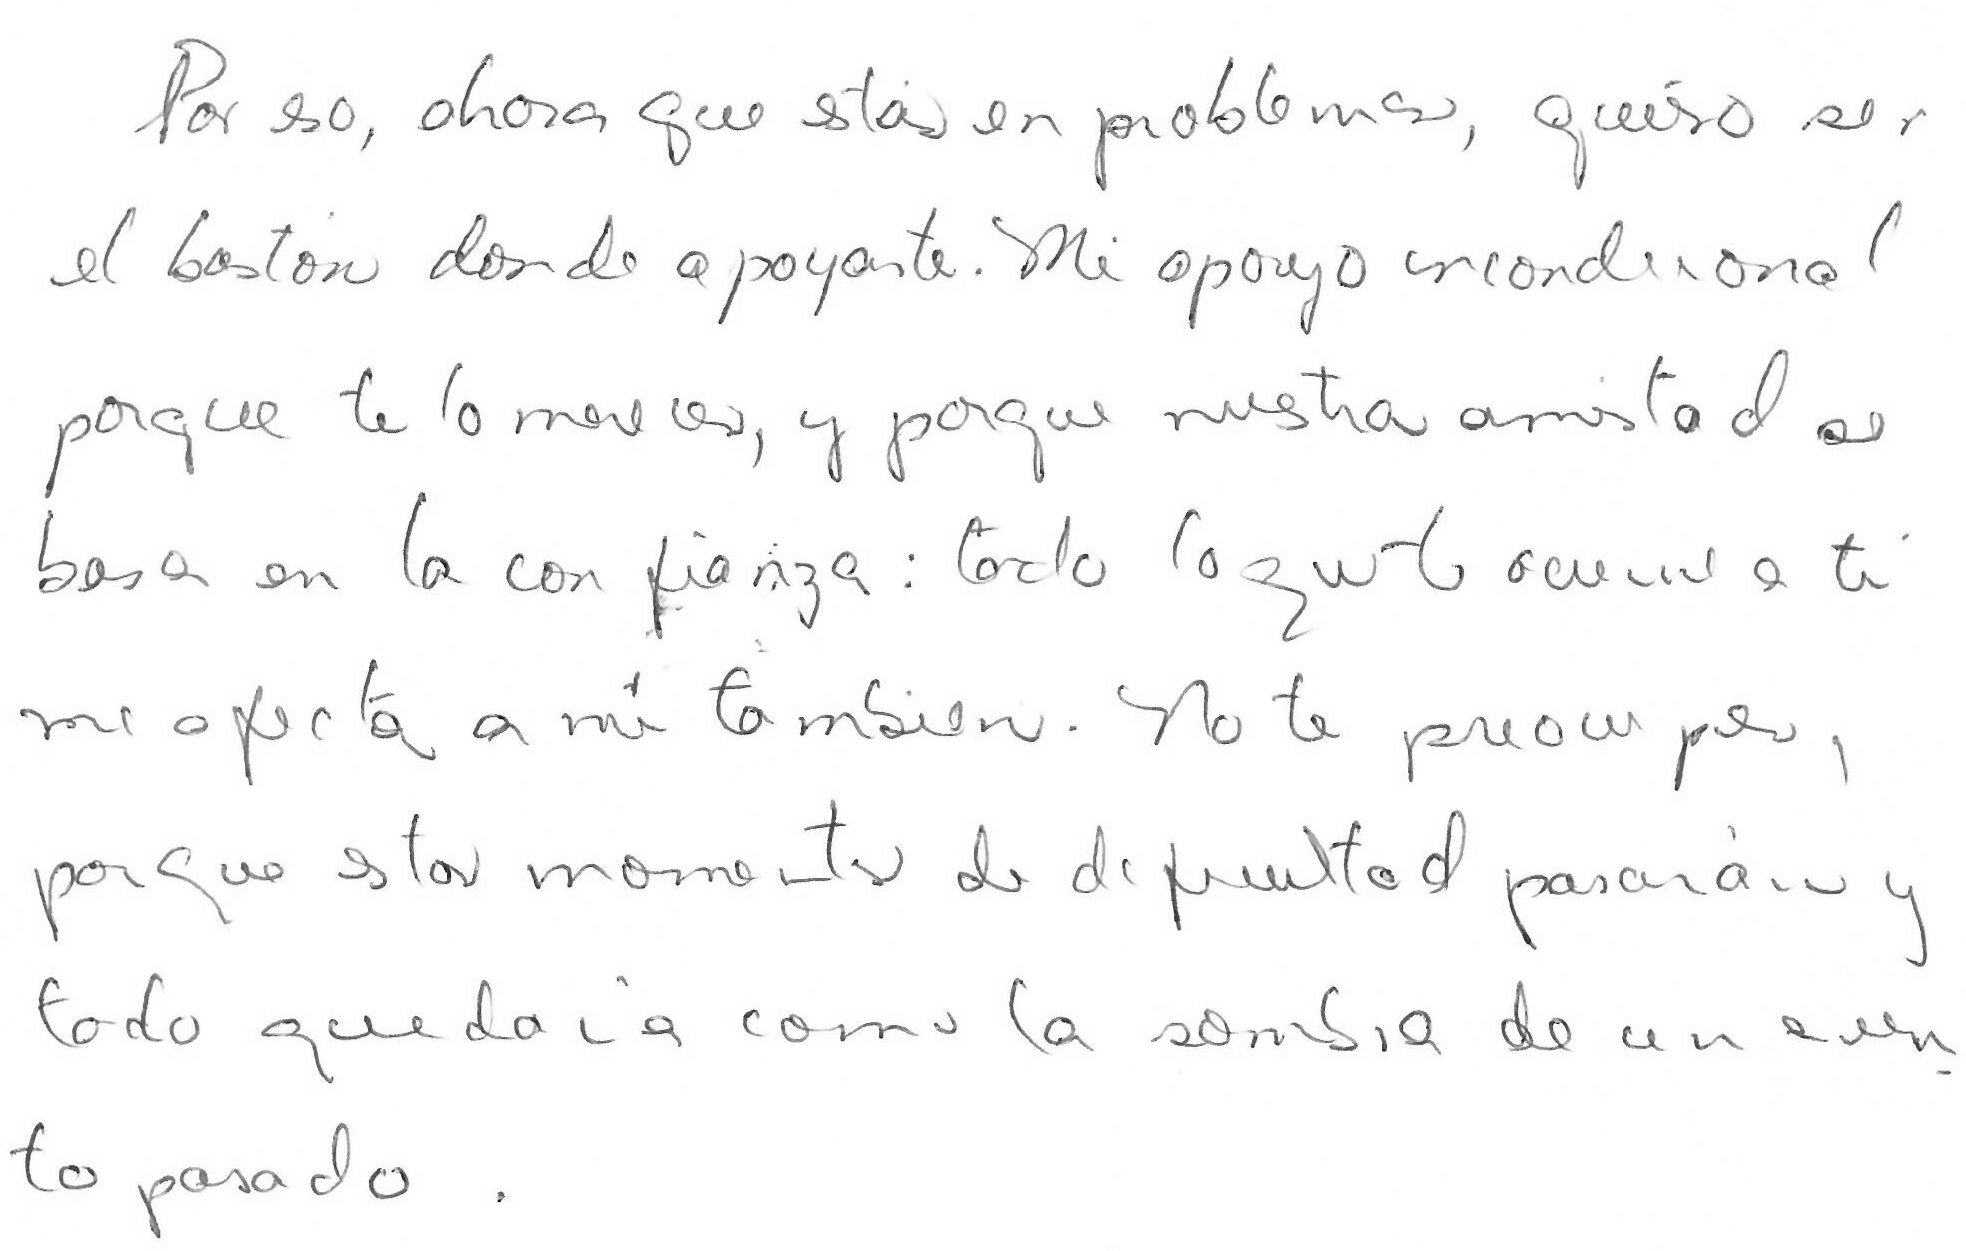 Por eso, ahora que estás en problemas, quiero ser
el bastón donde apoyarte. Mi apoyo incondicional
porque te lo mereces, y porque nuestra amistad se
basa en la confianza: todo lo que te ocurre a ti
me afecta a mí tambien. No te preocupes,
porque estos momentos de dificultad pasarán y
todo quedará como la sombra de un even
to pasado.